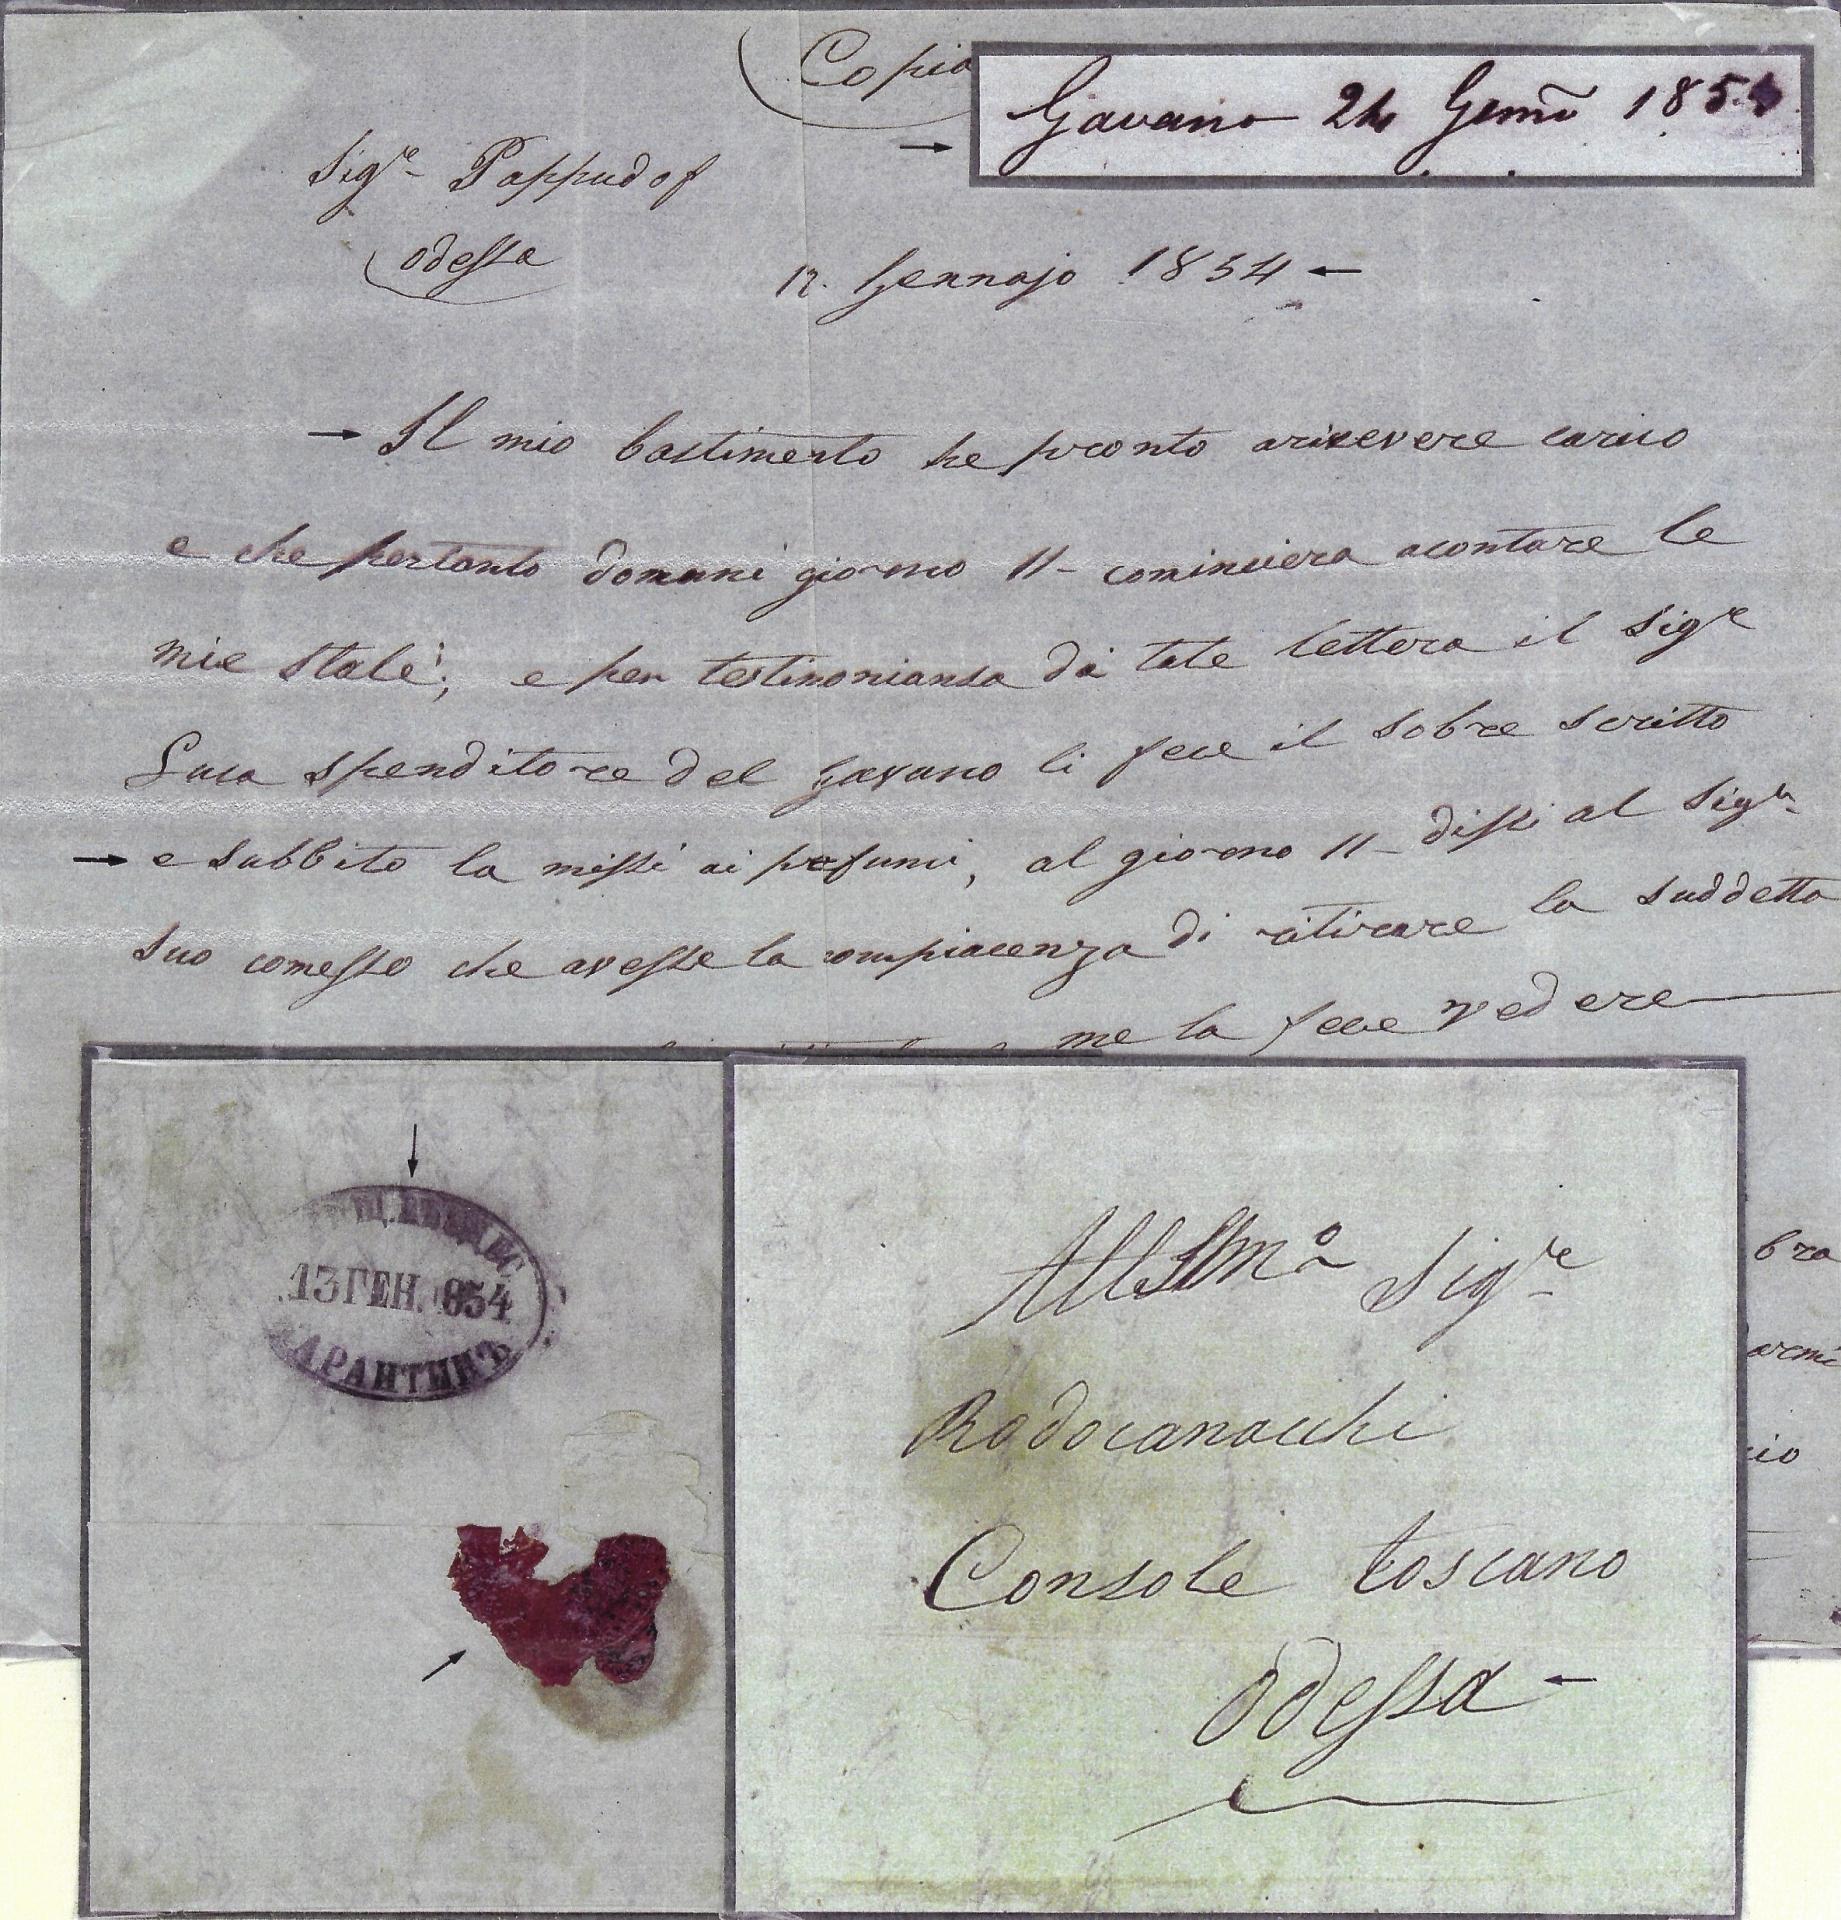 Copia
Gavano 24 Genro 1854
Sigre Pappudof
Odessa
12. Gennajo 1854
Il mio bastimento he pronto arisevere carico
e che pertanto domani giorno 11 - cominciera acontare le
mie stalé; e per testimoniansa di tale lettera il Sigre
Luca spenditore del gavano li fece il sobre scritto
e subbito la missi ai profumi, al giorno 11 - dissi al Sigr
suo comesso che avesse la compiacenza di ritirare la suddetta
me la fece vedere
13 ГЕН. 854
КАРАНТИНЪ
All Illmo Sigre
Rodocanacchi
Console toscano
Odessa
bra
armi
cio